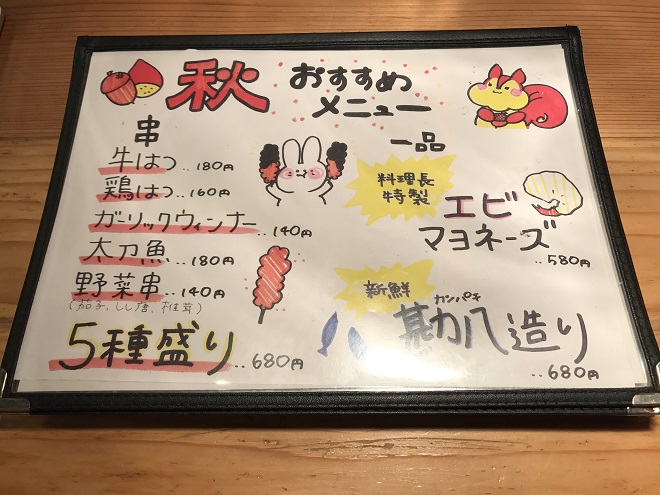 秋 おすすめ
メニュー
串
牛はつ..180円
鶏はつ..160円
ガーリックウィンナー..140円
太刀魚..180円
野菜串..140円
(茄子、しし唐、椎茸)
5種盛り..680円
一品
料理長
特製
エビ
マヨネーズ
..580円
新鮮
カンパチ
勘八造り
..680円